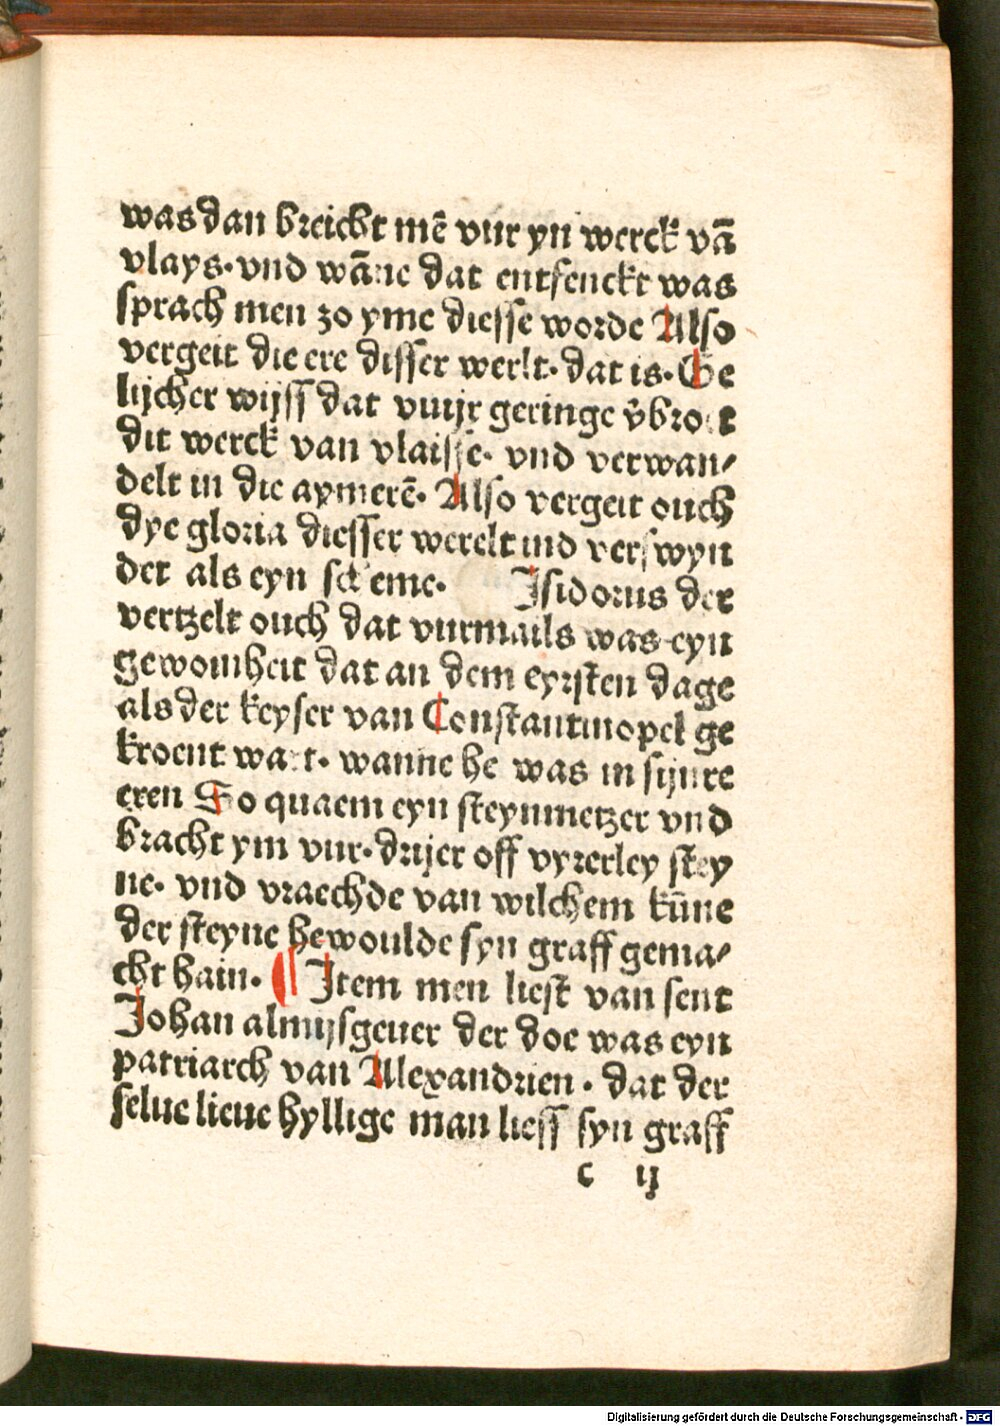 was dan breicht mē vur yn werck vā
vlays. vnd wāne dat entfenckt was
sprach men zo yme diesse worde Also
vergeit die ere disser werlt. dat is. Ge
lijcher wijss dat vuijr geringe v̄brot
dit werck van vlaisse. vnd verwan/
delt in die aymerē. Also vergeit ouch
dye gloria diesser werelt ind verswyn
det als eyn scheme. Isidorus der
vertzelt ouch dat vurmails was eyn
gewoinheit dat an dem eyrsten dage
als der keyser van Constantinopel ge
kroent wart. wanne he was in sijnre
eren So quaem eyn steynmetzer vnd
bracht ym vur. drijer off vyrerley stey
ne. vnd vraechde van wilchem kūne
der steyne he woulde syn graff gema/
cht hain. ¶ Item men liest van sent
Johan almijsgeuer der doe was eyn
patriarch van Alexandrien. dat der
selue lieue hyllige man liess syn graff
c ij
Digitalisierung gefördert durch die Deutsche Forschungsgemeinschaft - DFG